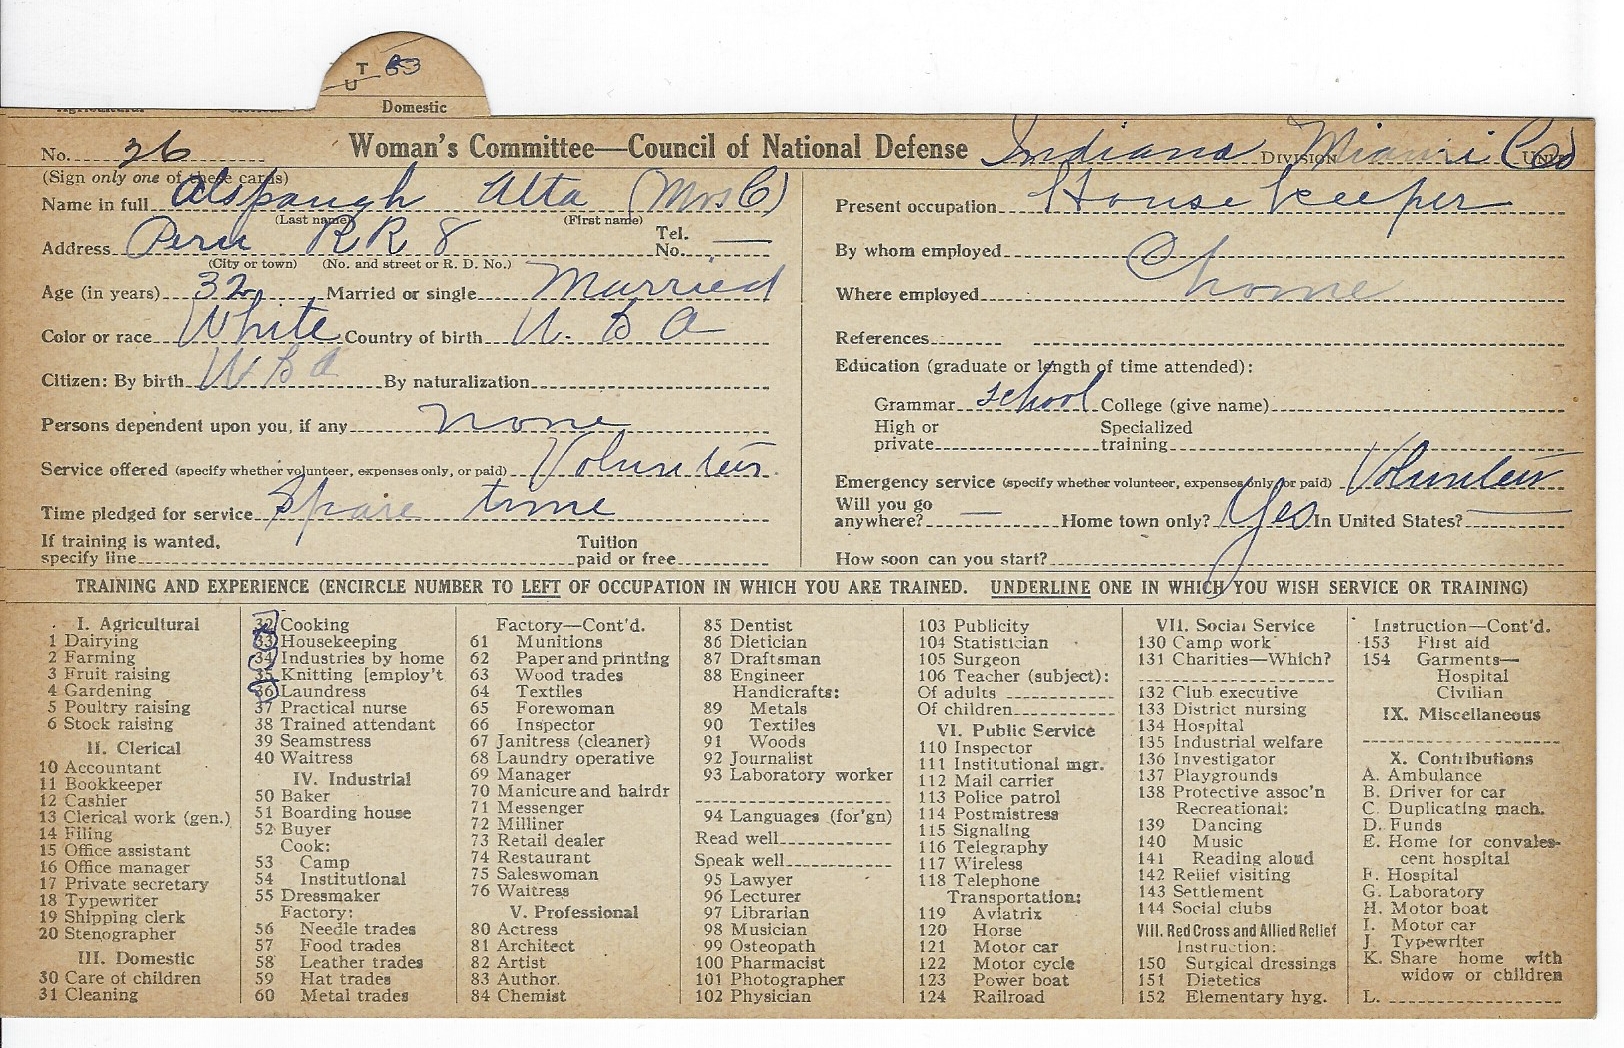 T
U 33
Domestic
No. 26 Woman's Committee—Council of National Defense Indiana DIVISION Miami Co UNIT
(Sign only one of these cards)
Name in full Alspaugh Alta (Mrs C)
(Last name) (First name)
Address Peru RR 8 Tel. No. —
(City or town) (No. and street or R. D. No.)
Age (in years) 32 Married or single Married
Color or race White Country of birth U. S A
Citizen: By birth U S A By naturalization
Persons dependent upon you, if any none
Service offered (specify whether volunteer, expenses only, or paid) Volunteer
Time pledged for service Spare time
If training is wanted, specify line Tuition paid or free
Present occupation House keeper
By whom employed @ home
Where employed
References
Education (graduate or length of time attended):
Grammar school College (give name)
High or private Specialized training
Emergency service (specify whether volunteer, expenses only, or paid) Volunteer
Will you go anywhere? — Home town only? Yes In United States? —
How soon can you start?
TRAINING AND EXPERIENCE (ENCIRCLE NUMBER TO LEFT OF OCCUPATION IN WHICH YOU ARE TRAINED. UNDERLINE ONE IN WHICH YOU WISH SERVICE OR TRAINING)
I. Agricultural
1 Dairying
2 Farming
3 Fruit raising
4 Gardening
5 Poultry raising
6 Stock raising
II. Clerical
10 Accountant
11 Bookkeeper
12 Cashier
13 Clerical work (gen.)
14 Filing
15 Office assistant
16 Office manager
17 Private secretary
18 Typewriter
19 Shipping clerk
20 Stenographer
III. Domestic
30 Care of children
31 Cleaning
32 Cooking
33 Housekeeping
34 Industries by home
35 Knitting [employ't
36 Laundress
37 Practical nurse
38 Trained attendant
39 Seamstress
40 Waitress
IV. Industrial
50 Baker
51 Boarding house
52 Buyer
Cook:
53 Camp
54 Institutional
55 Dressmaker
Factory:
56 Needle trades
57 Food trades
58 Leather trades
59 Hat trades
60 Metal trades
Factory—Cont'd.
61 Munitions
62 Paper and printing
63 Wood trades
64 Textiles
65 Forewoman
66 Inspector
67 Janitress (cleaner)
68 Laundry operative
69 Manager
70 Manicure and hairdr
71 Messenger
72 Milliner
73 Retail dealer
74 Restaurant
75 Saleswoman
76 Waitress
V. Professional
80 Actress
81 Architect
82 Artist
83 Author
84 Chemist
85 Dentist
86 Dietician
87 Draftsman
88 Engineer
Handicrafts:
89 Metals
90 Textiles
91 Woods
92 Journalist
93 Laboratory worker
94 Languages (for'gn)
Read well
Speak well
95 Lawyer
96 Lecturer
97 Librarian
98 Musician
99 Osteopath
100 Pharmacist
101 Photographer
102 Physician
103 Publicity
104 Statistician
105 Surgeon
106 Teacher (subject):
Of adults
Of children
VI. Public Service
110 Inspector
111 Institutional mgr.
112 Mail carrier
113 Police patrol
114 Postmistress
115 Signaling
116 Telegraphy
117 Wireless
118 Telephone
Transportation:
119 Aviatrix
120 Horse
121 Motor car
122 Motor cycle
123 Power boat
124 Railroad
VII. Social Service
130 Camp work
131 Charities—Which?
132 Club executive
133 District nursing
134 Hospital
135 Industrial welfare
136 Investigator
137 Playgrounds
138 Protective assoc'n
Recreational:
139 Dancing
140 Music
141 Reading aloud
142 Relief visiting
143 Settlement
144 Social clubs
VIII. Red Cross and Allied Relief
Instruction:
150 Surgical dressings
151 Dietetics
152 Elementary hyg.
Instruction—Cont'd.
153 First aid
154 Garments—
Hospital
Civilian
IX. Miscellaneous
X. Contributions
A. Ambulance
B. Driver for car
C. Duplicating mach.
D. Funds
E. Home for convales-
cent hospital
F. Hospital
G. Laboratory
H. Motor boat
I. Motor car
J. Typewriter
K. Share home with
widow or children
L.